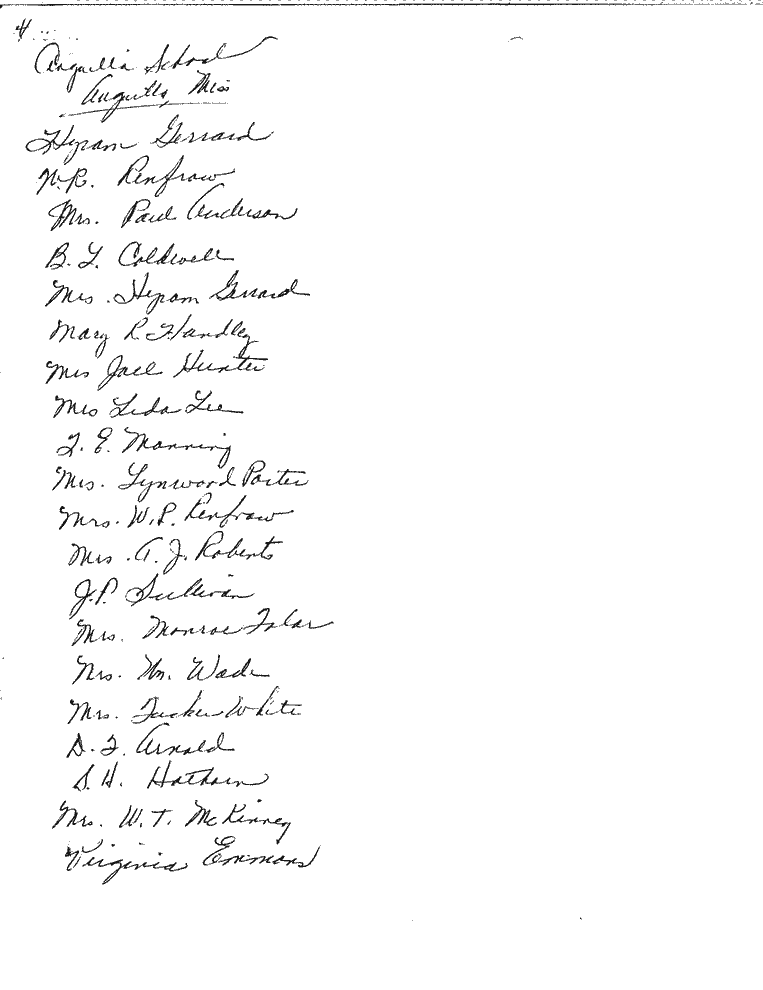 4
Anguilla School
Anguilla, Miss
Hyram Gerrard
W.R. Renfrow
Mrs. Paul Anderson
B. L. Coldwell
Mrs. Hyram Gerrard
Mary R. Handley
Mrs Jack Hunter
Mrs Leda Lee
T. E. Manning
Mrs. Lynwood Porter
Mrs. W.R. Renfrow
Mrs. A. J. Roberts
J.P. Sullivan
Mrs. Monroe Tolar
Mrs. Wm. Wade
Mrs. Tucker White
D. F. Arnold
S. H. Hathorn
Mrs. W. T. McKinney
Virginia Emmons